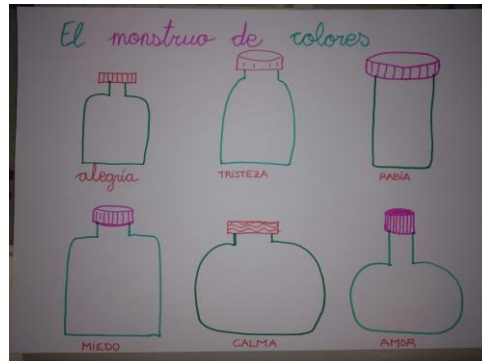 El monstruo de colores
alegría
TRISTEZA
RABÍA
MIEDO
CALMA
AMOR